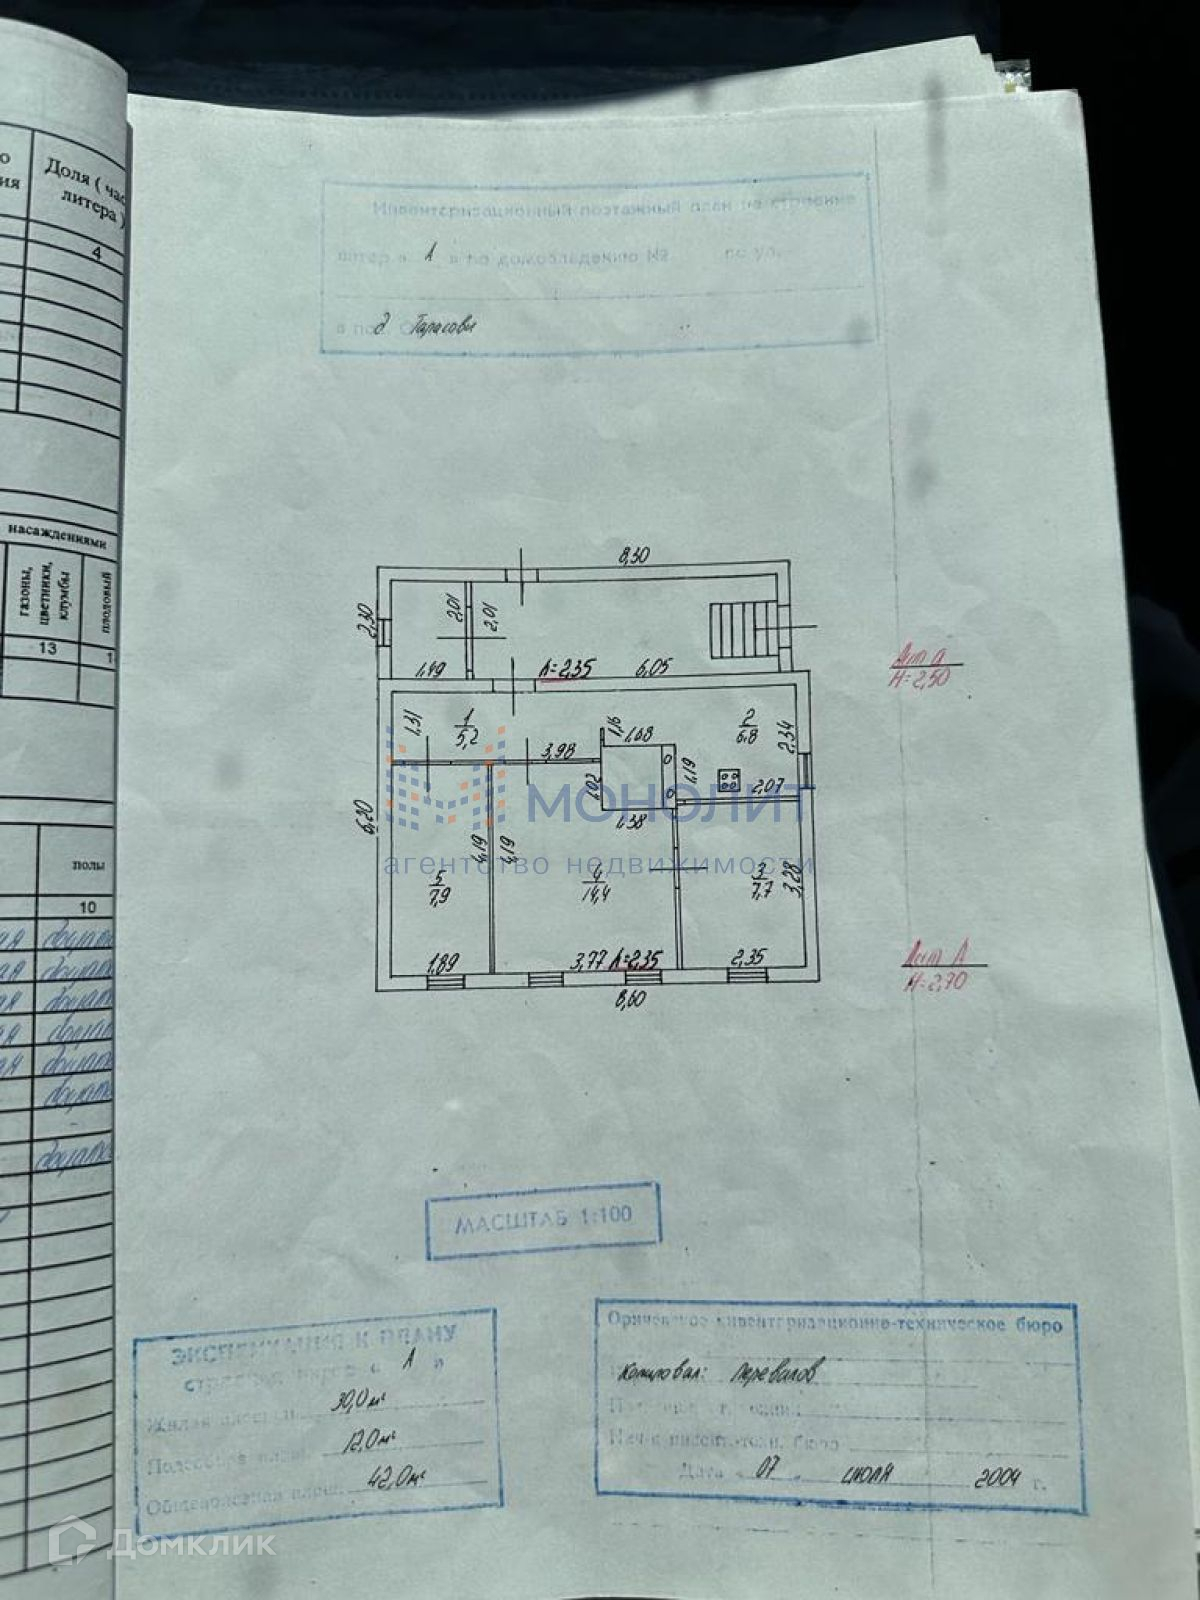 Доля ( час
литера )
4
насаждениями
газоны,
цветники,
клумбы
плодовый
13
1
полы
10
Инвентаризационный поэтажный план на строение
литер « А » по домовладению № по ул.
д Тарасовы
8,30
2,30
2,01
2,01
1,49
h=2,35
6,05
Лит а
H=2,50
1,31
1
5,2
3,98
1,16
1,68
2
6,8
2,34
1,02
1,19
2,07
1,38
МОНОЛИТ
агентство недвижимости
6,20
4,19
4,19
5
7,9
4
14,4
3
7,7
3,28
1,89
3,77
h=2,35
2,35
8,60
Лит А
H=2,70
МАСШТАБ 1:100
ЭКСПЛИКАЦИЯ К ПЛАНУ
А
Жилая площ. 30,0 м²
12,0 м²
42,0 м²
Оричевское инвентаризационно-техническое бюро
Копировал: Перевалов
Нач-к инвент.-техн. бюро
Дата « 07 » июля 2004 г.
Домклик